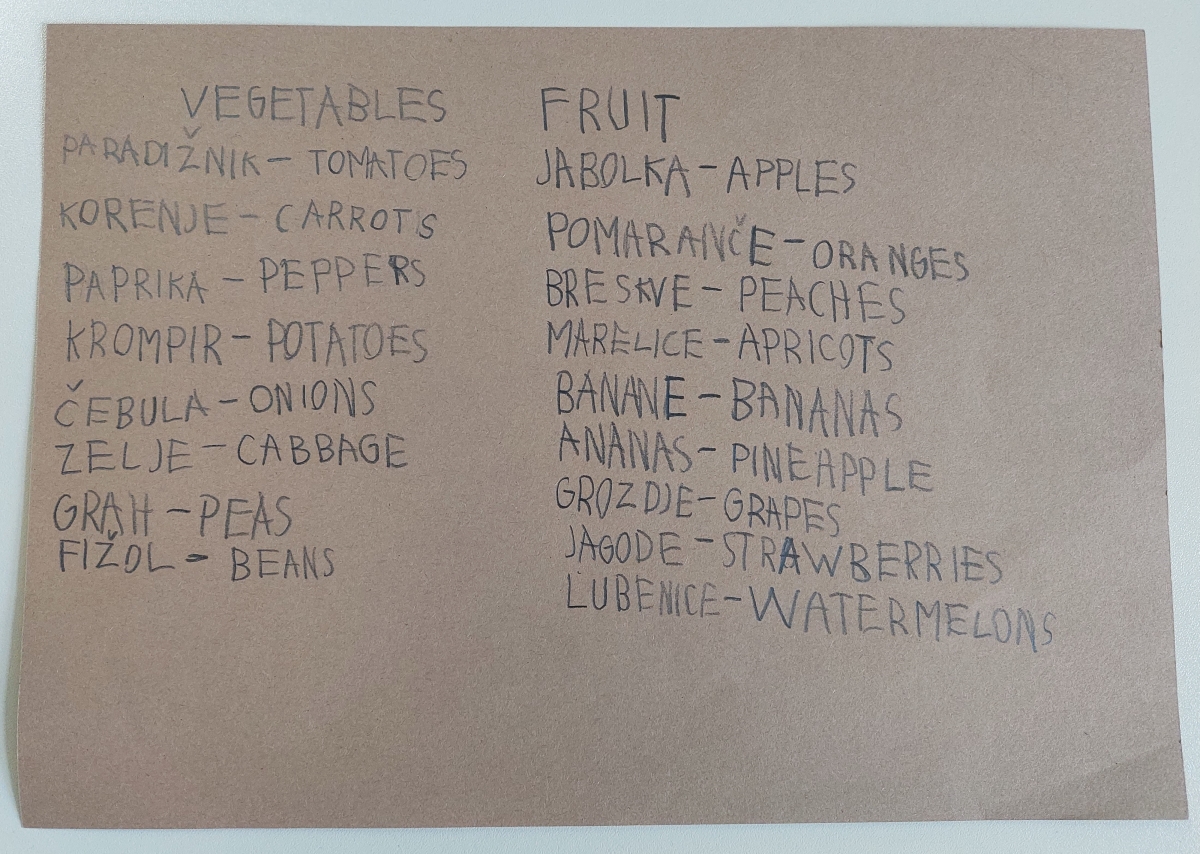 VEGETABLES
PARADIŽNIK - TOMATOES
KORENJE - CARROTS
PAPRIKA - PEPPERS
KROMPIR - POTATOES
ČEBULA - ONIONS
ZELJE - CABBAGE
GRAH - PEAS
FIŽOL - BEANS
FRUIT
JABOLKA - APPLES
POMARANČE - ORANGES
BRESKVE - PEACHES
MARELICE - APRICOTS
BANANE - BANANAS
ANANAS - PINEAPPLE
GROZDJE - GRAPES
JAGODE - STRAWBERRIES
LUBENICE - WATERMELONS